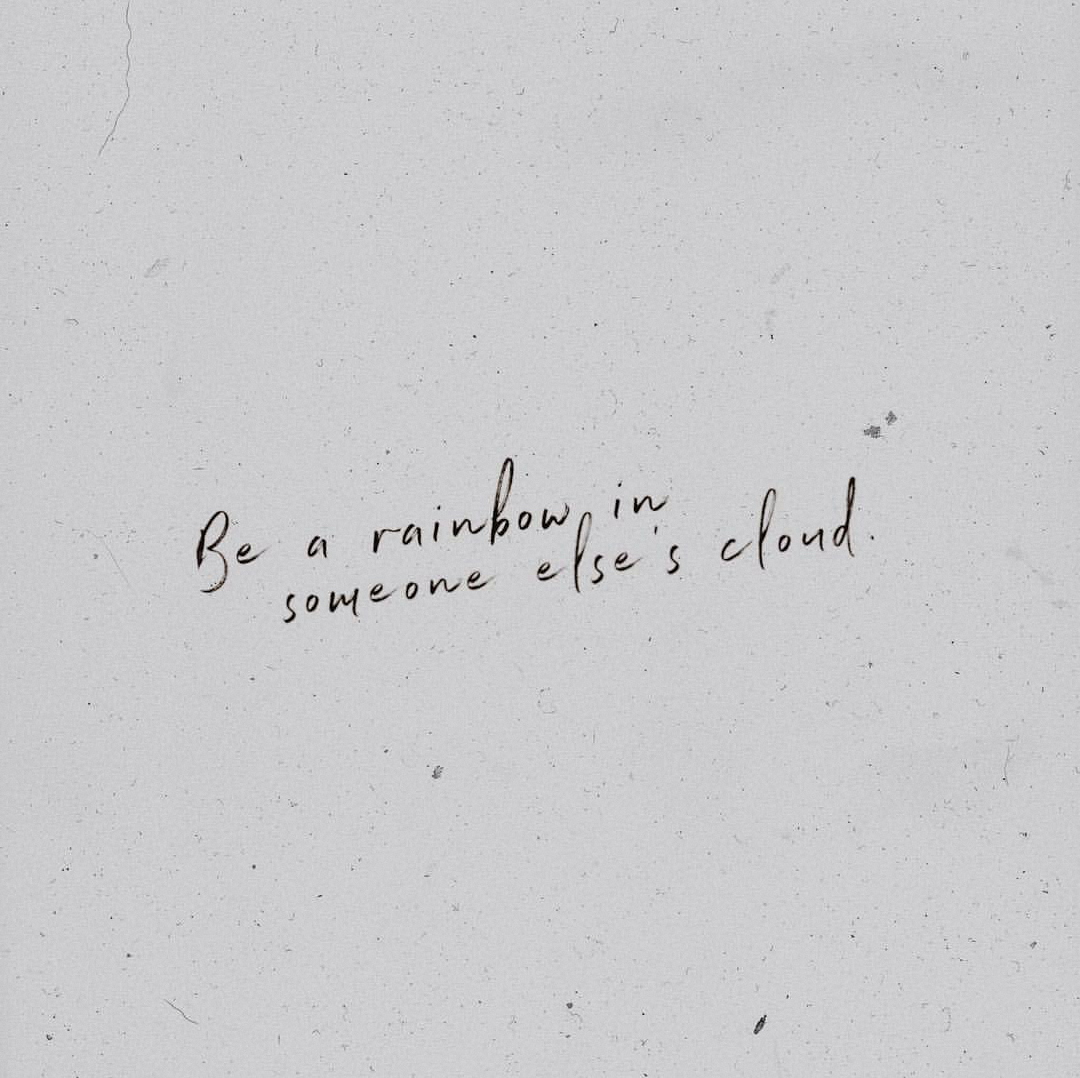 Be a rainbow in
someone else's cloud.